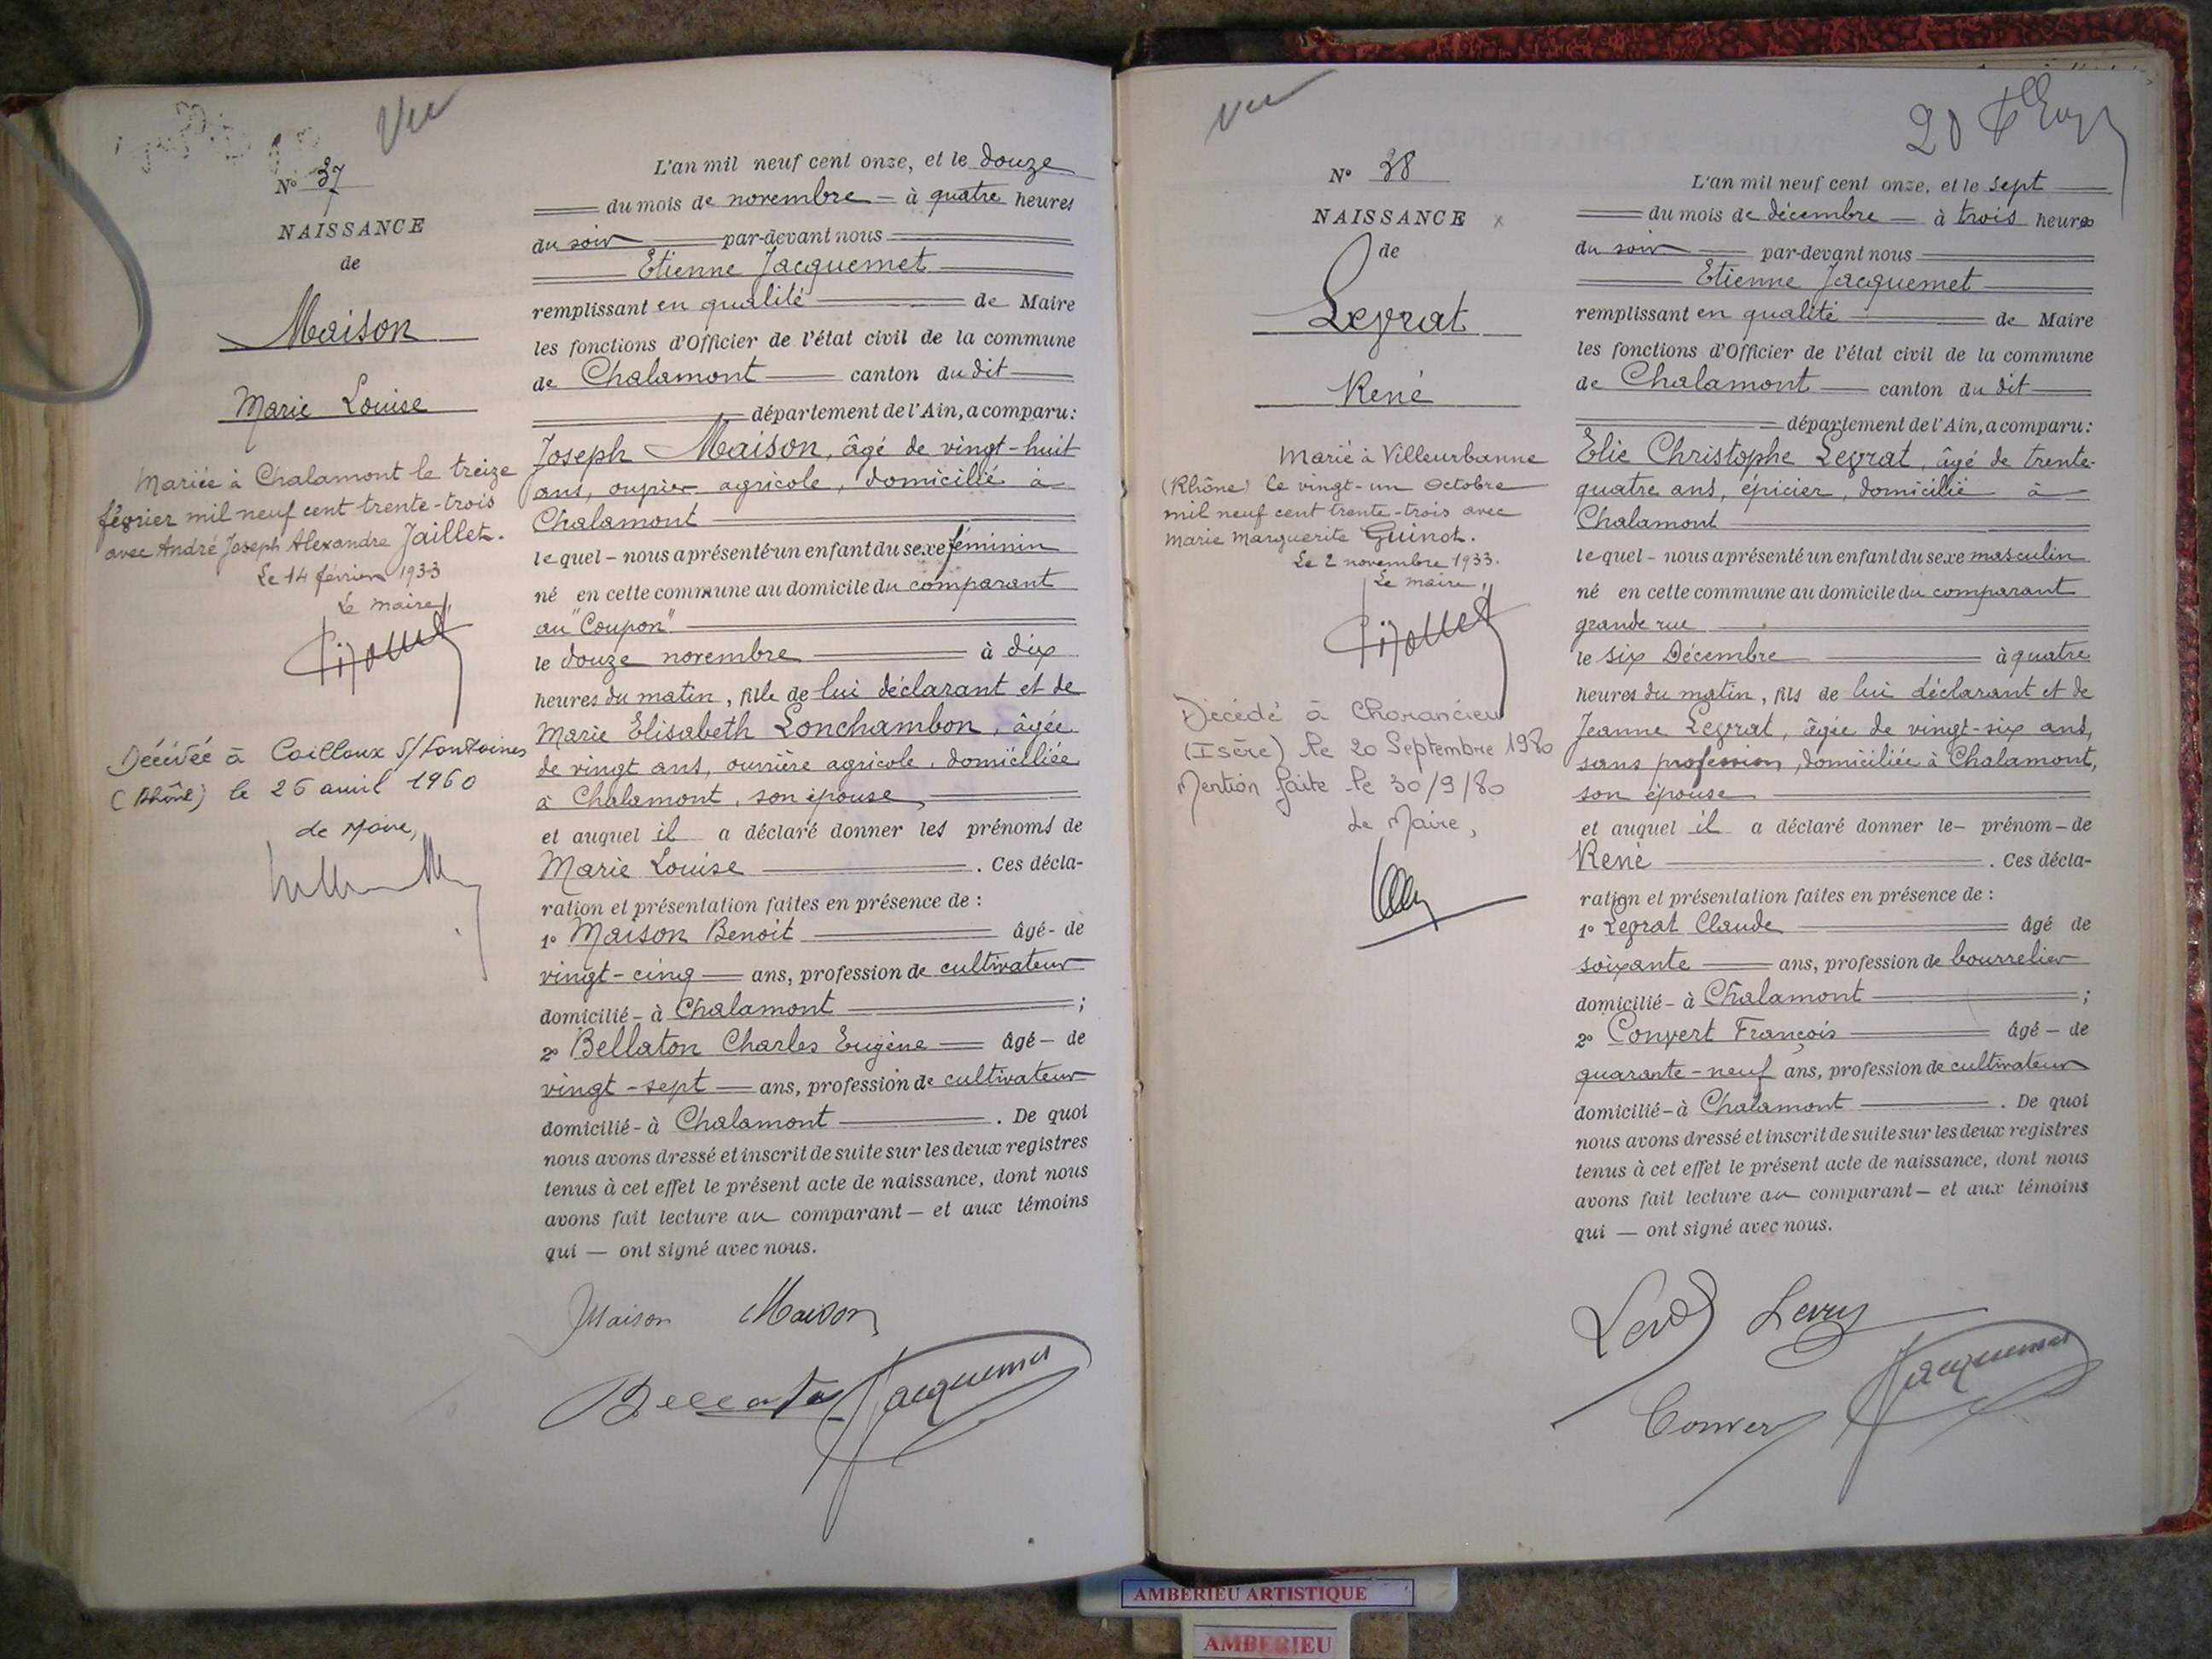 Vu
Nº 37
NAISSANCE
de
Maison
Marie Louise
Mariée à Chalamont le treize
février mil neuf cent trente-trois
avec André Joseph Alexandre Jaillet.
Le 14 février 1933
Le maire,
Décédée à Cailloux s/ Fontaines
(Rhône) le 26 avril 1960
Le Maire,
L'an mil neuf cent onze, et le douze
du mois de novembre à quatre heures
du soir par-devant nous
Etienne Jacquemet
remplissant en qualité de Maire
les fonctions d'Officier de l'état civil de la commune
de Chalamont canton du dit
département de l'Ain, a comparu:
Joseph Maison, âgé de vingt-huit
ans, ouvrier agricole, domicilié à
Chalamont
lequel - nous a présenté un enfant du sexe féminin
né en cette commune au domicile du comparant
au "Coupon"
le douze novembre à dix
heures du matin, fille de lui déclarant et de
Marie Elisabeth Lonchambon, âgée
de vingt ans, ouvrière agricole, domiciliée
à Chalamont, son épouse
et auquel il a déclaré donner les prénoms de
Marie Louise . Ces décla-
ration et présentation faites en présence de :
1º Maison Benoit âgé - de
vingt-cinq ans, profession de cultivateur
domicilié - à Chalamont ;
2º Bellaton Charles Eugène âgé - de
vingt-sept ans, profession de cultivateur
domicilié - à Chalamont . De quoi
nous avons dressé et inscrit de suite sur les deux registres
tenus à cet effet le présent acte de naissance, dont nous
avons fait lecture au comparant - et aux témoins
qui — ont signé avec nous.
Maison Maison
Bellaton Jacquemet
Vu
20
Nº 38
NAISSANCE x
de
Leyrat
René
Marié à Villeurbanne
(Rhône) le vingt-un Octobre
mil neuf cent trente-trois avec
Marie Marguerite Guinot.
Le 2 novembre 1933.
Le maire,
Décédé à Charancieu
(Isère) le 20 Septembre 1980
Mention faite le 30/9/80
Le Maire,
L'an mil neuf cent onze, et le sept
du mois de décembre à trois heures
du soir par-devant nous
Etienne Jacquemet
remplissant en qualité de Maire
les fonctions d'Officier de l'état civil de la commune
de Chalamont canton du dit
département de l'Ain, a comparu:
Elie Christophe Leyrat, âgé de trente-
quatre ans, épicier, domicilié à
Chalamont
lequel - nous a présenté un enfant du sexe masculin
né en cette commune au domicile du comparant
grande rue
le six Décembre à quatre
heures du matin, fils de lui déclarant et de
Jeanne Leyrat, âgée de vingt-six ans,
sans profession, domiciliée à Chalamont,
son épouse
et auquel il a déclaré donner le - prénom - de
René . Ces décla-
ration et présentation faites en présence de :
1º Leyrat Claude âgé de
soixante ans, profession de bourrelier
domicilié - à Chalamont ;
2º Convert François âgé - de
quarante-neuf ans, profession de cultivateur
domicilié - à Chalamont . De quoi
nous avons dressé et inscrit de suite sur les deux registres
tenus à cet effet le présent acte de naissance, dont nous
avons fait lecture au comparant - et aux témoins
qui — ont signé avec nous.
Jacquemet
AMBERIEU ARTISTIQUE
AMBERIEU